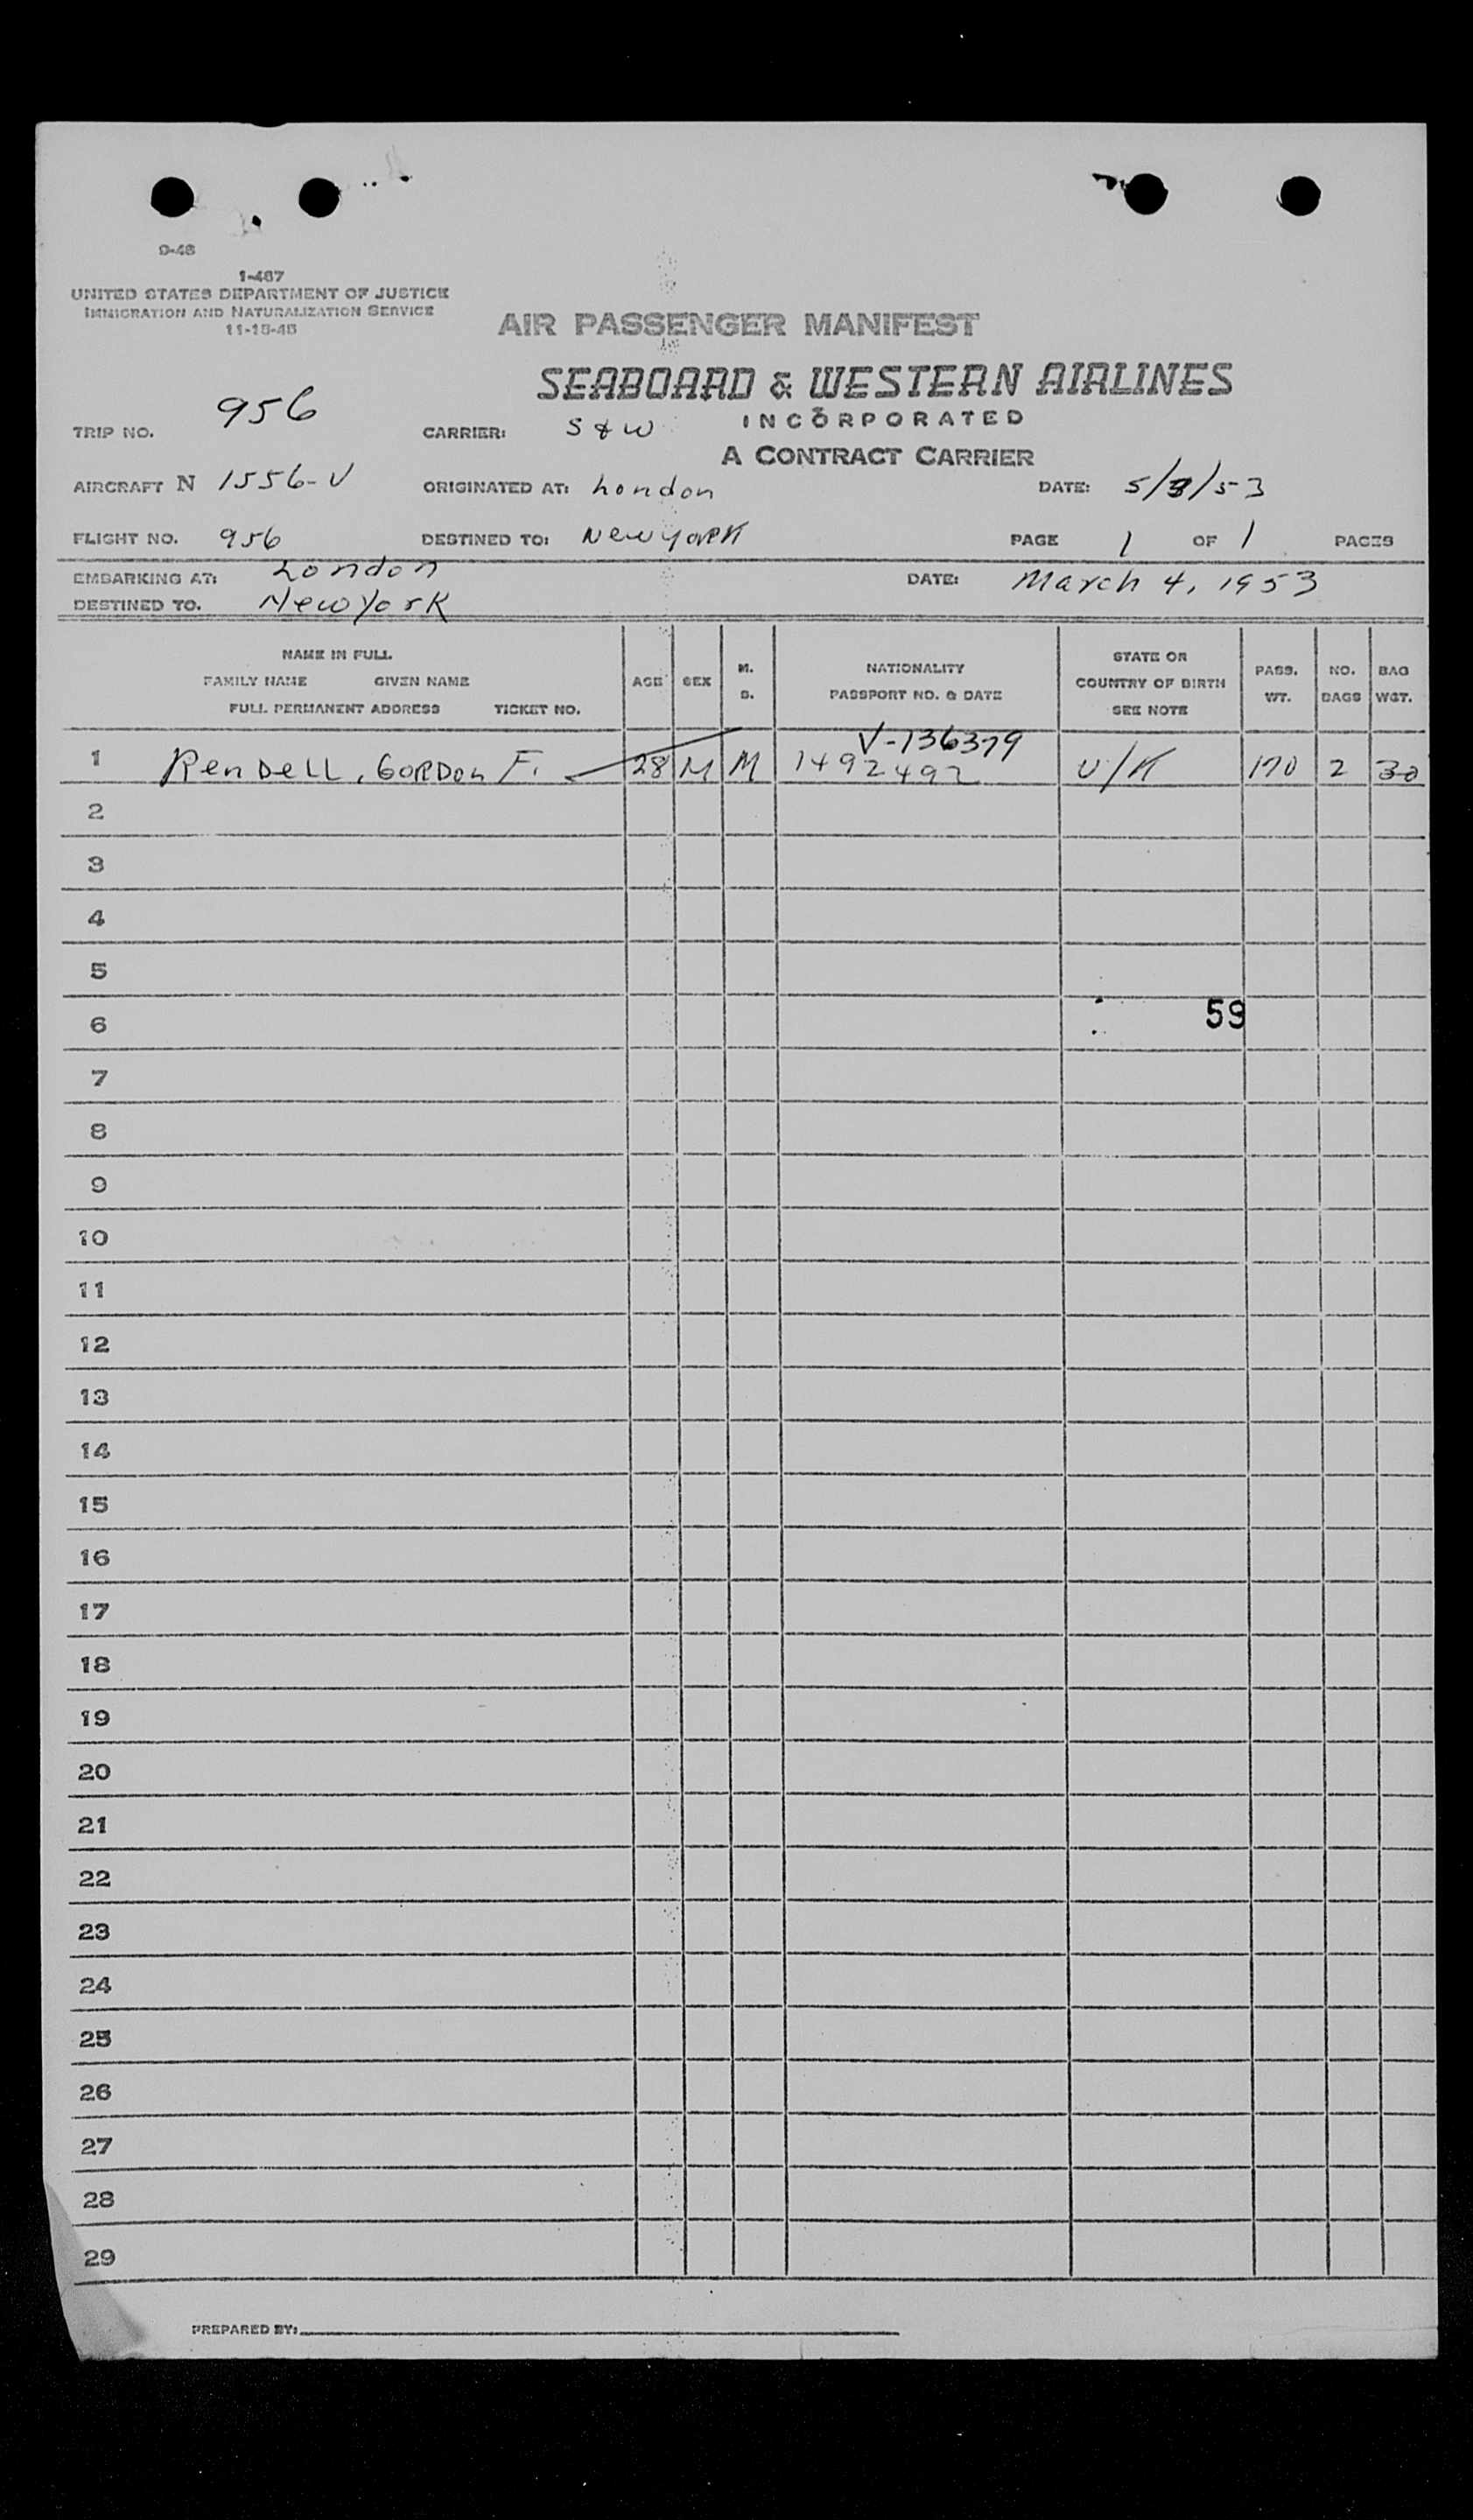 9-48
1-467
UNITED STATES DEPARTMENT OF JUSTICE
IMMIGRATION AND NATURALIZATION SERVICE
11-15-45
AIR PASSENGER MANIFEST
SEABOARD & WESTERN AIRLINES
INCORPORATED
A CONTRACT CARRIER
TRIP NO. 956 CARRIER: S & W
AIRCRAFT N 1556-V ORIGINATED AT: London DATE: 5/3/53
FLIGHT NO. 956 DESTINED TO: New York PAGE 1 OF 1 PAGES
EMBARKING AT: London DATE: March 4, 1953
DESTINED TO. New York
NAME IN FULL
FAMILY NAME GIVEN NAME
FULL PERMANENT ADDRESS TICKET NO.
AGE
SEX
M.
S.
NATIONALITY
PASSPORT NO. & DATE
STATE OR
COUNTRY OF BIRTH
SEE NOTE
PASS.
WT.
NO.
BAGS
BAG
WGT.
V-136379
1 RenDeLL, GORDON F. 28 M M 1492492 U/K 170 2 30
2
3
4
5
6 59
7
8
9
10
11
12
13
14
15
16
17
18
19
20
21
22
23
24
25
26
27
28
29
PREPARED BY: